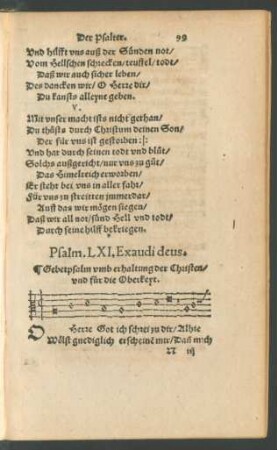 Der Psalter. 99
Vnd hilfft vns auß der Sünden not/
Vom Hellschen schrecken/teuffel/todt/
Daß wir auch sicher leben/
Des dancken wir/ O Herre dir/
Du kansts alleyne geben.
V.
Mit vnser macht ists nicht gethan/
Du thůsts durch Christum deinen Son/
Der für vns ist gestorben :|:
Vnd hat durch seinen todt vnd blůt/
Solchs außgericht/nur vns zů gůt/
Das Himelreich erworben/
Er steht bey vns in aller fahr/
Für vns zu streitten jmmerdar/
Auff das wir mögen siegen/
Daß wir all not/sünd Hell vnd todt/
Durch seine hilff bekriegen.
Psalm. LXI. Exaudi deus.
¶ Gebetpsalm vmb erhaltung der Christen/
vnd für die Oberkeyt.
O Herre Got ich schrei zu dir/ Alhie
Wölst gnediglich erscheinē mir/ Daß mich